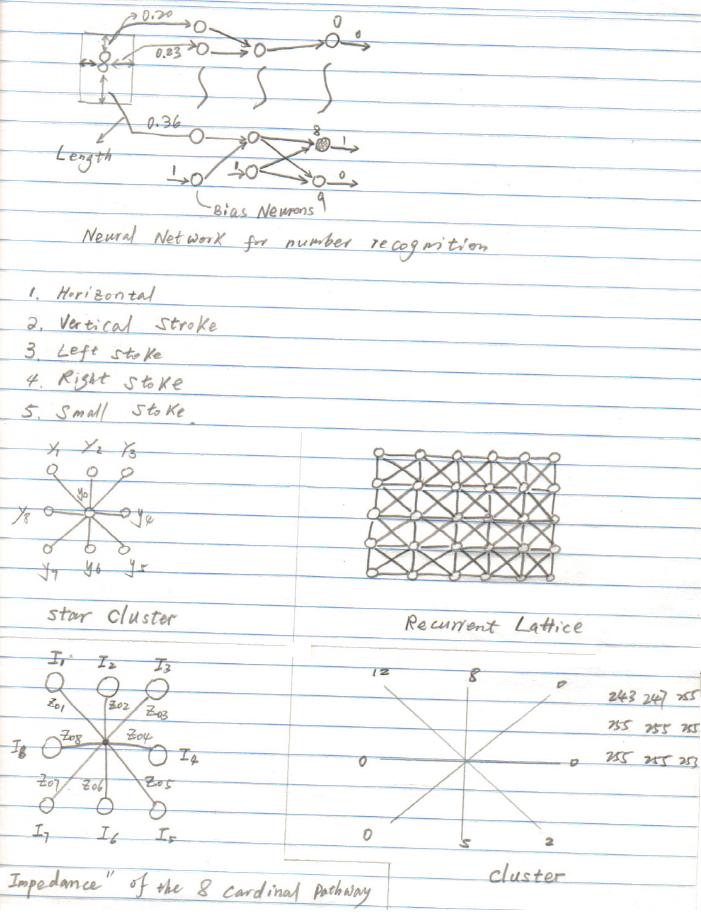 0.20
0
0
0.23
8
0.36
8
1
Length
1
1
0
9
Bias Neurons
Neural Network for number recognition
1. Horizontal
2. Vertical Stroke
3. Left stoke
4. Right stoke
5. Small stoke.
Y1 Y2 Y3
y0
Y8 Y4
Y7 Y6 Y5
Star Cluster
Recurrent Lattice
I1 I2 I3
Z01 Z02 Z03
I8 Z08 Z04 I4
Z07 Z06 Z05
I7 I6 I5
Impedance" of the 8 cardinal pathway
12 8 0
0 0
0 5 2
243 247 255
255 255 255
255 255 253
cluster